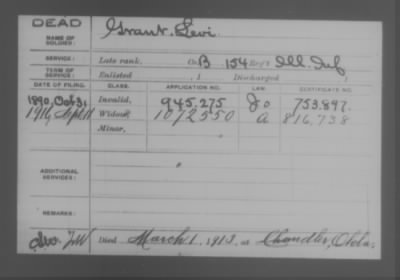 DEAD
NAME OF SOLDIER: Grant, Levi.
SERVICE: Late rank, Co. B 154 Reg't Ill. Inf
TERM OF SERVICE: Enlisted , 1 Discharged , 1
DATE OF FILING. CLASS. APPLICATION NO. LAW. CERTIFICATE NO.
1890, Oct 31 Invalid, 945,275 753,897.
1916, Widow, 1072550 a 816,738
Minor,
ADDITIONAL SERVICES:
REMARKS:
Died March 1, 1913, at Chandler, Okla.